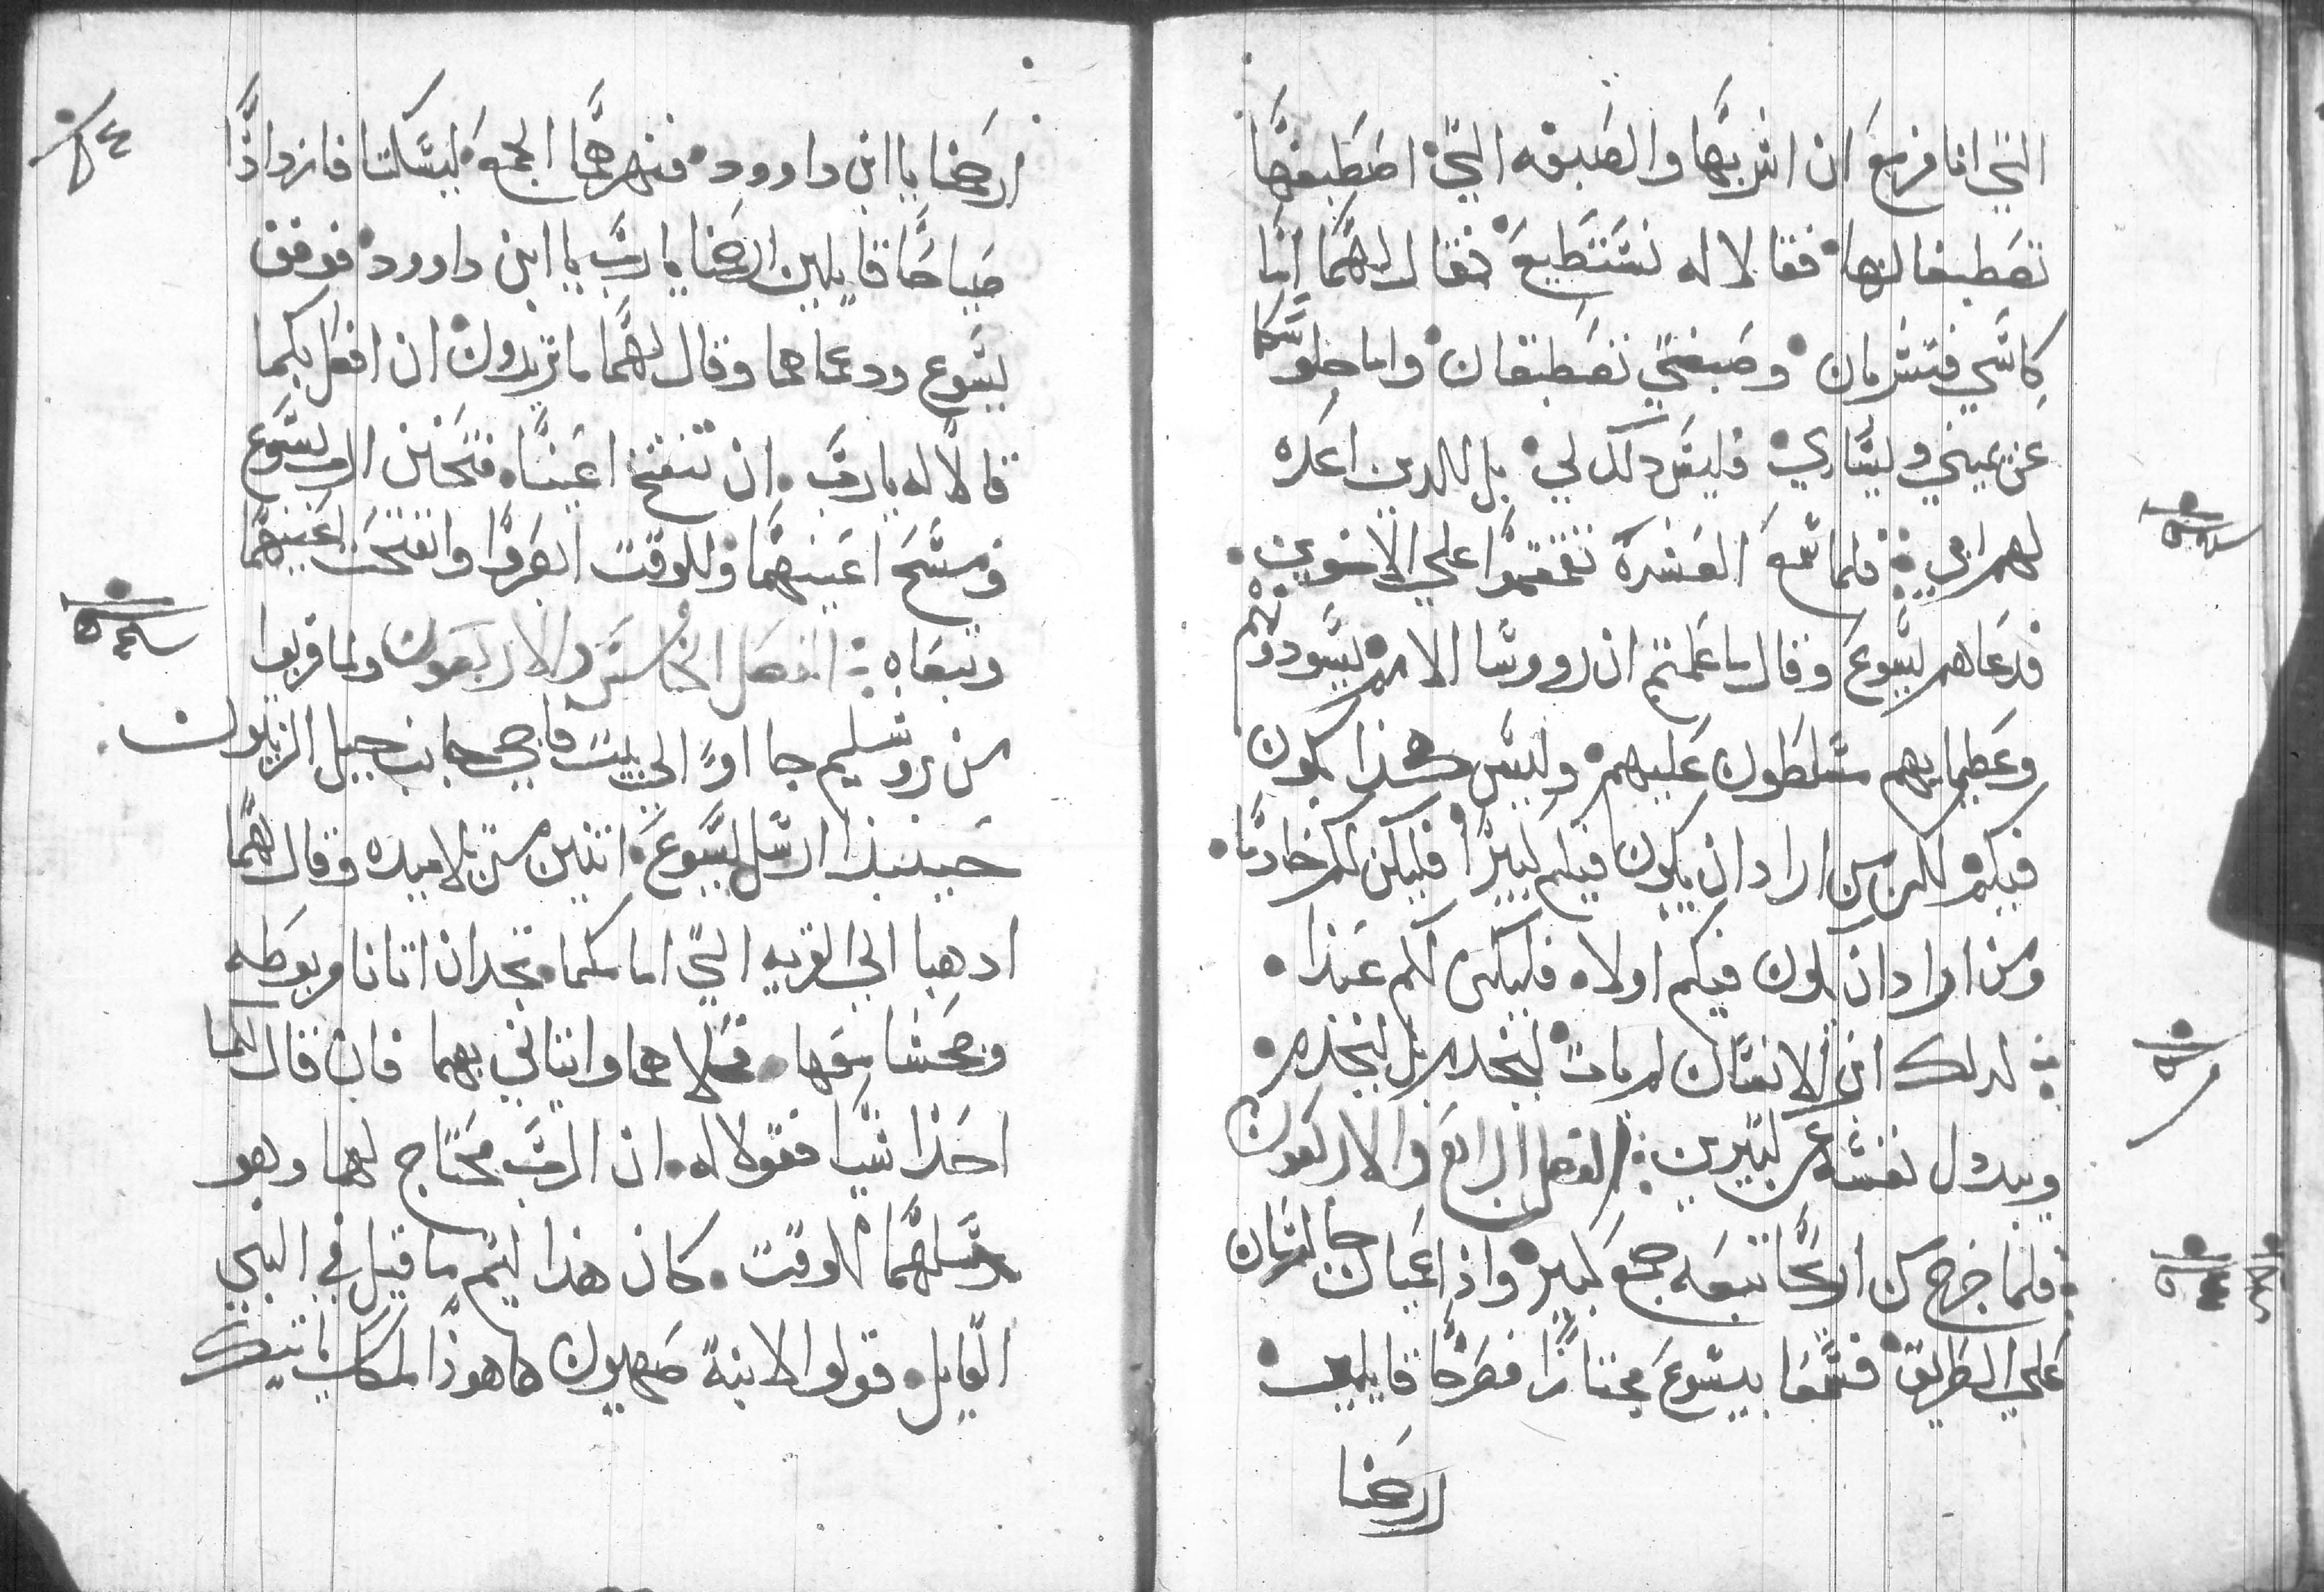 التي انا مزمع ان اشربها والصبغه التي اصطبغها
تصطبغانها فقالا له نستطيع فقال لهما اما
كاسي فتشربان وصبغتي تصطبغان واما جلوسكما
عن يميني ويساري فليس دلك لي بل للدين اعده
لهم ابي فلما سمع العشره تقمقموا علي الاخوين
فدعاهم يسوع وقال ما علمتم ان رووسا الامم يسودونهم
وعظمايهم مسلطون عليهم وليس هكذا يكون
فيكم لكن من اراد ان يكون فيكم كبيرا فليكن لكم خادما
ومن اراد ان يكون فيكم اولا فليكن لكم عبدا
لدلك ابن الانسان لم يات ليخدم بل ليخدم
ويبدل نفسه عن كثيرين الفصل الرابع والاربعون
فلما خرج من اريحا تبعه جمع كبير واذا عميان جالسان
علي الطريق فسمعا بيسوع مجتازا فصرخا قايلين
ارحمنا
ارحمنا يا ابن داوود فنهرهما الجمع ليسكتا فازدادا
صياحا قايلين ارحمنا يا رب يا ابن داوود فوقف
يسوع ودعاهما وقال لهما ما تريدون ان افعل بكما
قالا له يا رب ان تنفتح اعيننا فتحنن الرب يسوع
ومسح اعينهما وللوقت ابصروا وانفتحت اعينهما
وتبعاه الفصل الخامس والاربعون ولما قربوا
من يروشليم جااوا الي بيت فاجي جانب جبل الزيتون
حينيذا ارسل يسوع اتنين من تلاميده وقال لهما
ادهبا الي القريه التي امامكما تجدان اتانا مربوطه
وجحشا معها فحلاهما واتياني بهما فان قال لكما
احدا شيا فقولا له ان الرب محتاج لهما وهو
يرسلهما للوقت كان هذا ليتم ما قيل في النبي
القايل قولوا لابنة صهيون ها هوذا ملكك ياتيك